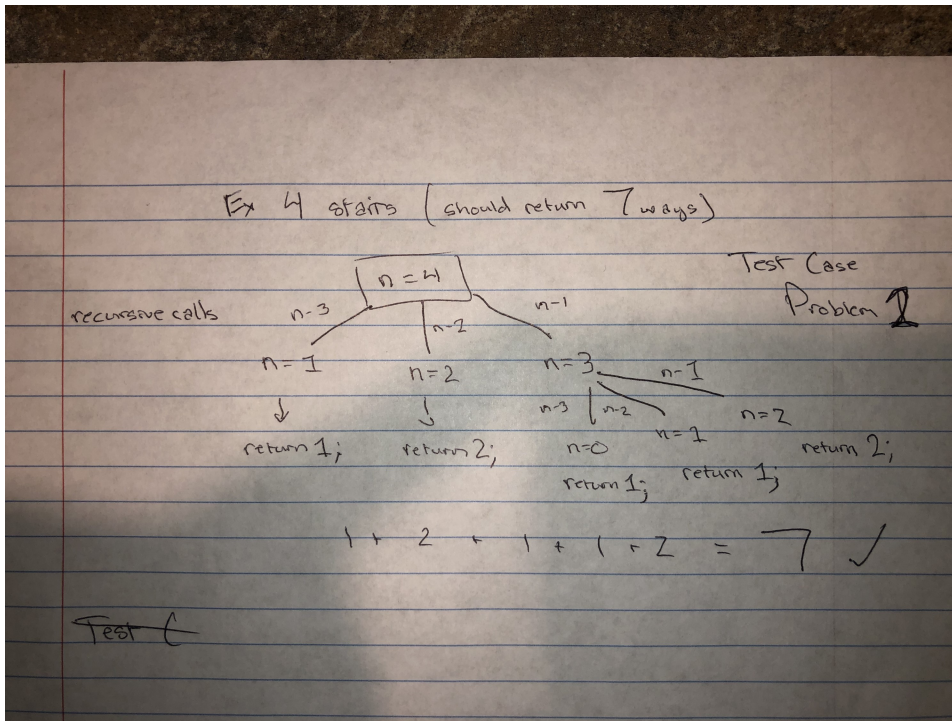 Ex 4 stairs (should return 7 ways)
Test Case
Problem 1
recursive calls
n=4
n-3
n-2
n-1
n=1
n=2
n=3
n-3
n-2
n-1
return 1;
return 2;
n=0
n=1
n=2
return 1;
return 1;
return 2;
1 + 2 + 1 + 1 + 2 = 7 ✓
Test C